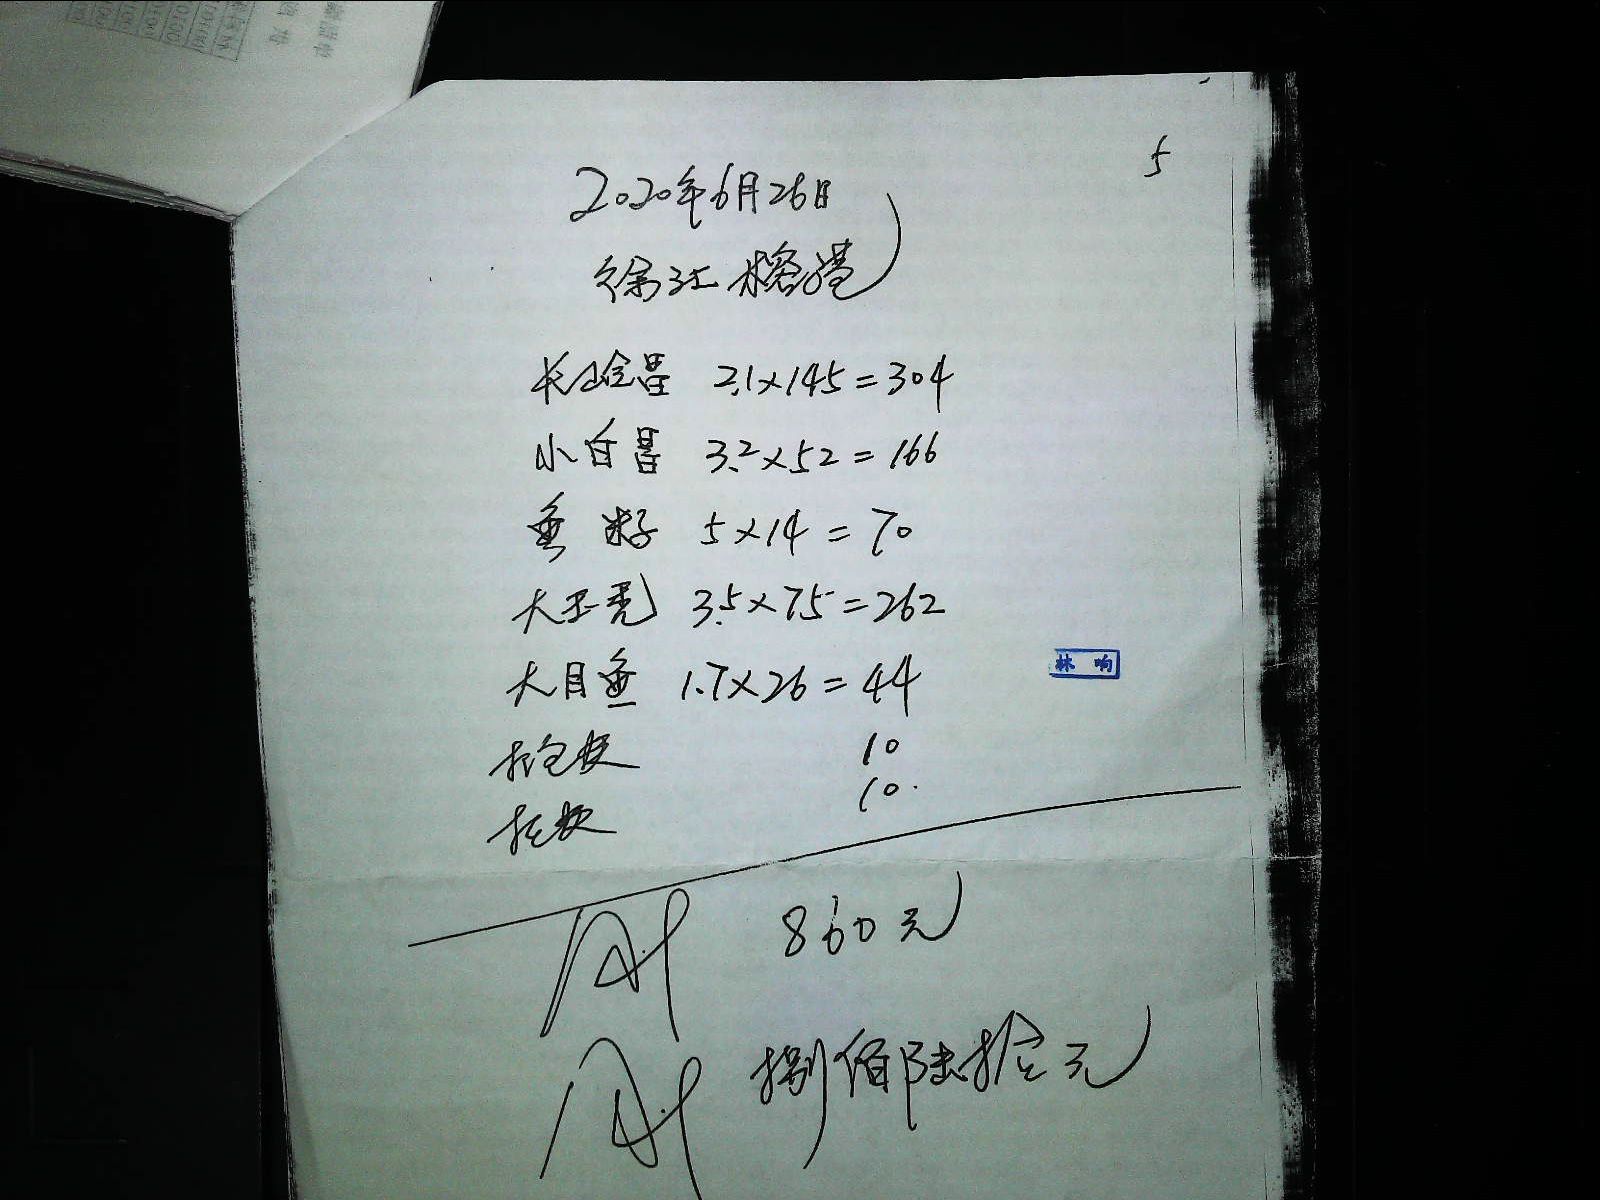 5
2020年6月26日
徐江
长 昌 2.1×145=304
小白昌 3.2×52=166
鱼籽 5×14=70
大玉秃 3.5×75=262
大目鱼 1.7×26=44
林响
10
10.
860元
捌佰陆拾元